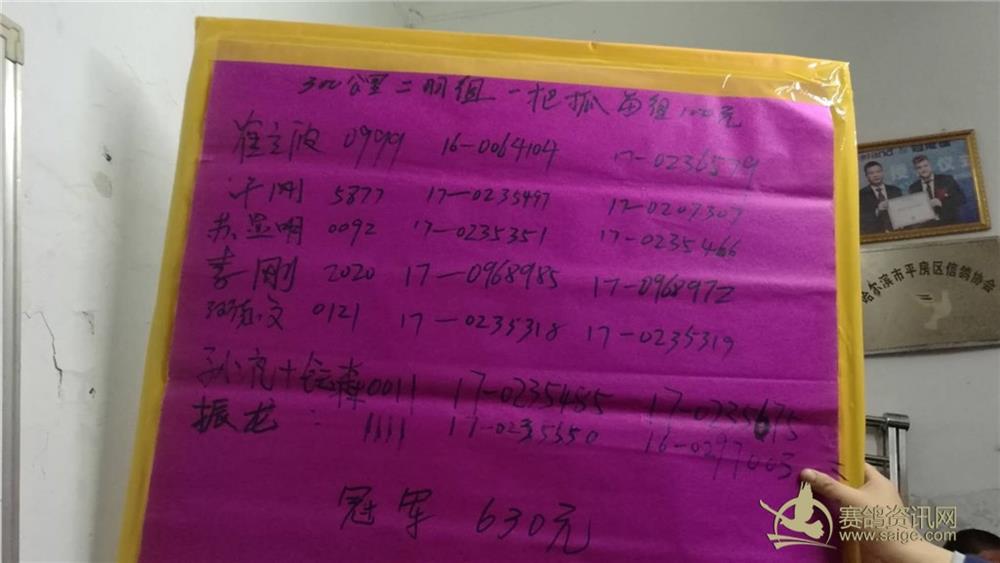 300公里二羽组 一把抓 每组100元
崔立波 0999 16-0064104 17-0236579
平刚 5877 17-0235497 17-0207307
苏显明 0092 17-0235351 17-0235466
春刚 2020 17-0968985 17-0968972
文 0121 17-0235318 17-0235319
孙亮+ 0011 17-0235485 17-0235675
振龙: 1111 17-0235550 16-0297003
冠军 630元
哈尔滨市平房区信鸽协会
赛鸽资讯网
www.saige.com